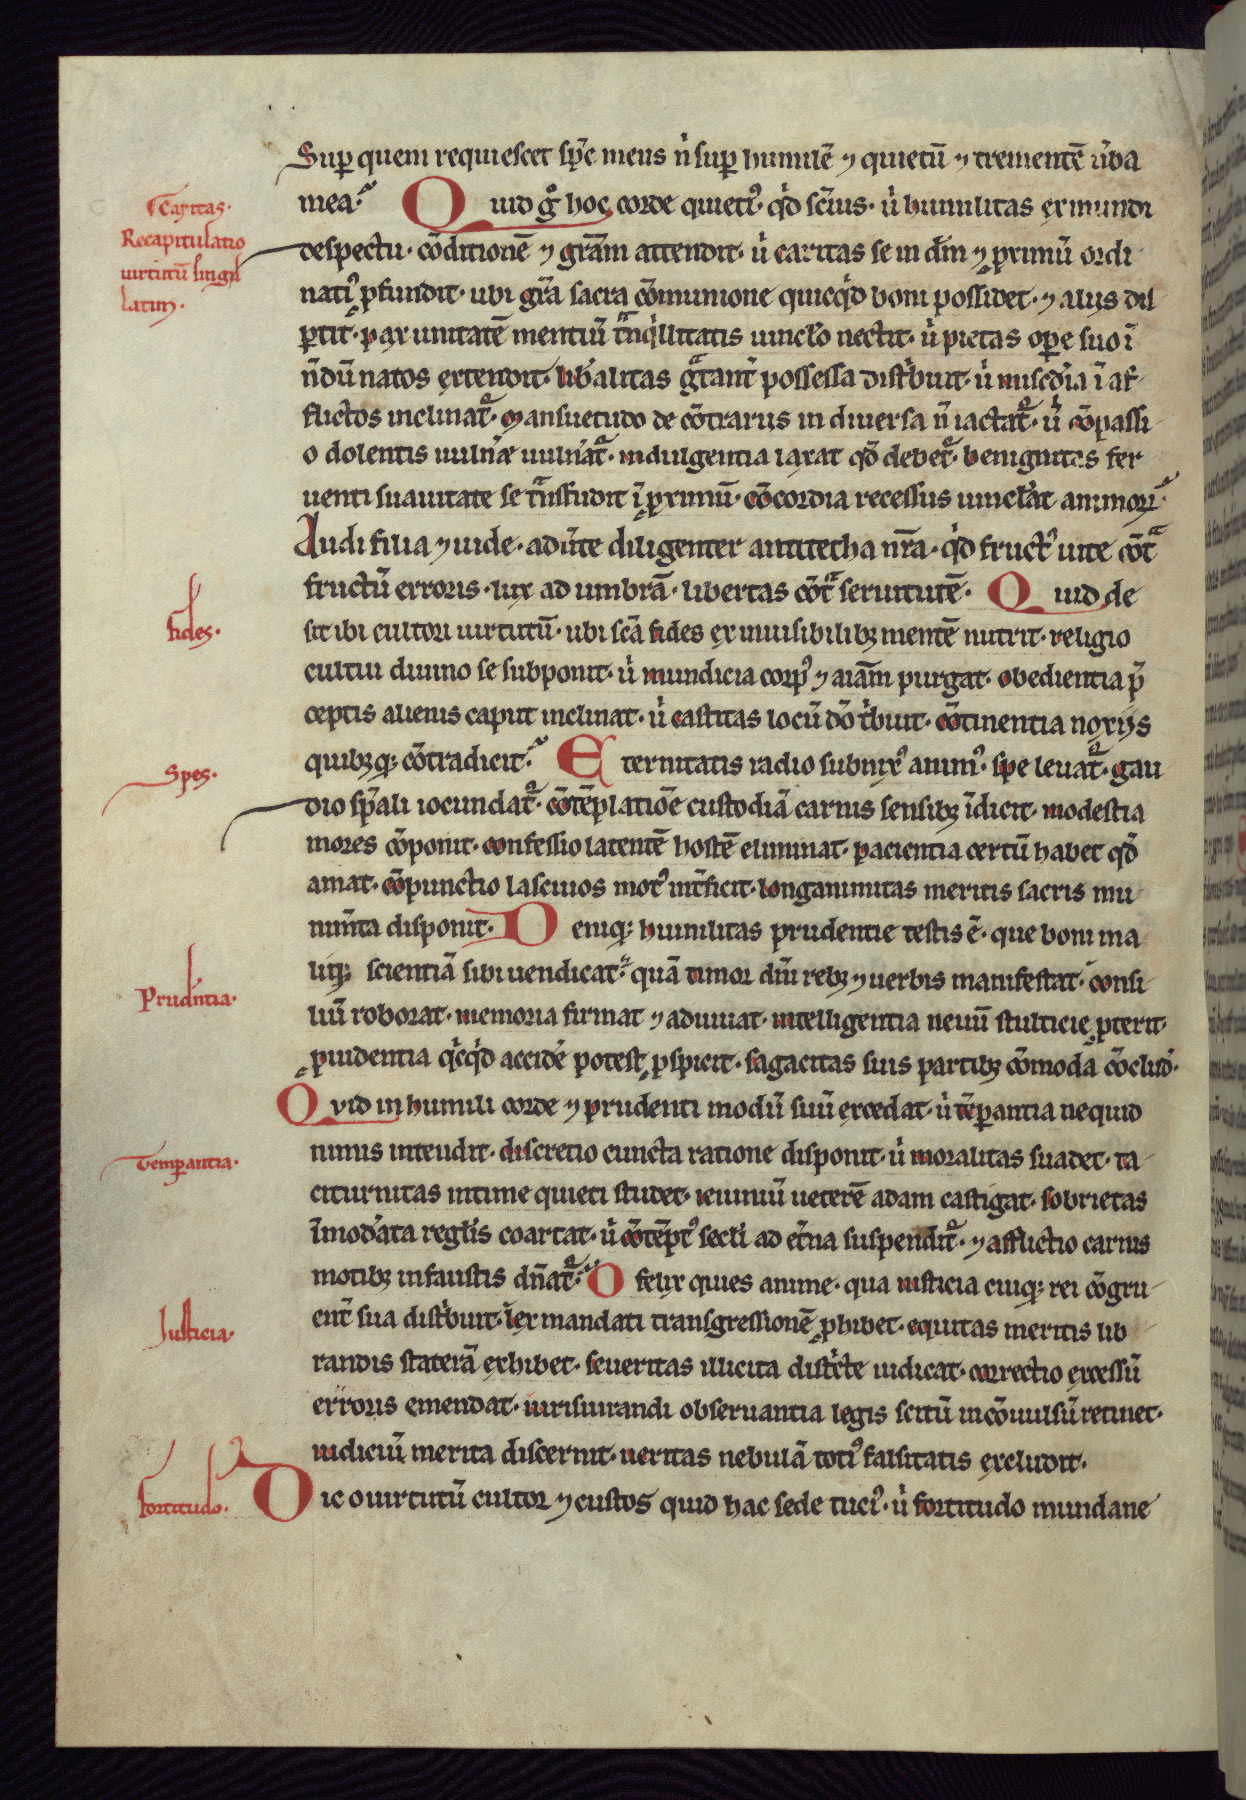 Sup quem requiescet sp̄c meus n̍ sup humilē ⁊ quietū ⁊ trementē u̍ba
Caritas.
mea. Quid gͦ hoc corde quietiꝰ. qͥd sc̄ius. u̍ humilitas ex mundi
Recapitulatio
uirtutū singil
latim.
despectu. cōditionē ⁊ grām attendit. u̍ caritas se in dm̄ ⁊ proximū ordi
natiꝰ ꝓfundit. ubi gr̄a sacra cōmunione quicqͥd boni possidet. ⁊ aliis dis
ꝑtit. pax unitatē mentiū tͣnqͥllitatis uinclo̍ nectit. u̍ pietas oꝑe suo ī
n̄dū natos extendit. lib̍alitas gͣtant̍ possessa distͥbuit. u̍ mis̄cdia ī af
flictos inclinatͬ. mansuetudo de cōtrariis in diuersa n̄ iactatͬ. u̍ cōpassi
o dolentis uuln̍e uuln̍atͬ. indulgentia laxat qd̄ debetͬ. benignitas fer
uenti suauitate se tͣnsfudit ī ꝓximū. cōcordia recessus uincl̍at animoꝝ.
Audi filia ⁊ uide. adu̍te diligenter antitecha nr̄a. qͥd fructꝰ uite cōtͣ
fructū erroris. lux ad umbrā. libertas cōtͣ seruitutē. Quid de
fides.
sit ibi cultori uirtutū. ubi sc̄a fides ex inuisibilibꝫ mentē nutrit. religio
cultui diuino se subponit. u̍ mundicia corpꝰ ⁊ aīam purgat. obedientia p̄
ceptis alienis caput inclinat. u̍ castitas locū dō tͥbuit. cōtinentia noxiis
quibꝫqꝫ cōtradicit. Eternitatis radio subnixꝰ animꝰ. spe leuatͬ. gau
Spes.
dio sp̄ali iocundatͬ. cōtēplatiōe custodiā carnis sensibꝫ īdicit. modestia
mores cōponit. confessio latentē hostē eliminat. pacientia certū habet qd̄
amat. cōpunctio lasciuos motꝰ int̄ficit. longanimitas meritis sacris mu
nim̄ta disponit. Deniqꝫ humilitas prudentie testis ē. que boni ma
liqꝫ scientiā sibi uendicat. quā timor dn̄i rebꝫ ⁊ uerbis manifestat. consi
Prudn̄tia.
liū roborat. memoria firmat ⁊ adiuuat. intelligentia neuū stulticie p̄terit.
prouidentia qͥcqͥd accide̍ potest ꝓspicit. sagacitas suis partibꝫ cōmoda cōclud̍.
Quid in humili corde ⁊ prudenti modū suū excedat. u̍ tēꝑantia ne quid
Temꝑantia.
nimis intendit. discretio cuncta ratione disponit. u̍ moralitas suadet. ta
citurnitas intime quieti studet. ieiuniū ueterē adam castigat. sobrietas
īmod̍ata regl̍is coartat. u̍ cōtēptꝰ secl̍i ad et̄na suspenditͬ. ⁊ afflictio carnis
motibꝫ infaustis dn̄atͬ. O felix quies anime. qua iusticia cuiqꝫ rei cōgru
Iusticia.
ent̍ sua distͥbuit. lex mandati transgressionē ꝓhibet. equitas meritis lib
randis staterā exhibet. seueritas illicita distͥcte iudicat. correctio excessū
erroris emendat. iurisiurandi obseruantia legis scitū incōuulsū retinet.
iudiciū merita discernit. ueritas nebulā totiꝰ falsitatis excludit.
fortitudo.
Dic o uirtutū cultor ⁊ custos quid hac sede tuciꝰ. u̍ fortitudo mundane